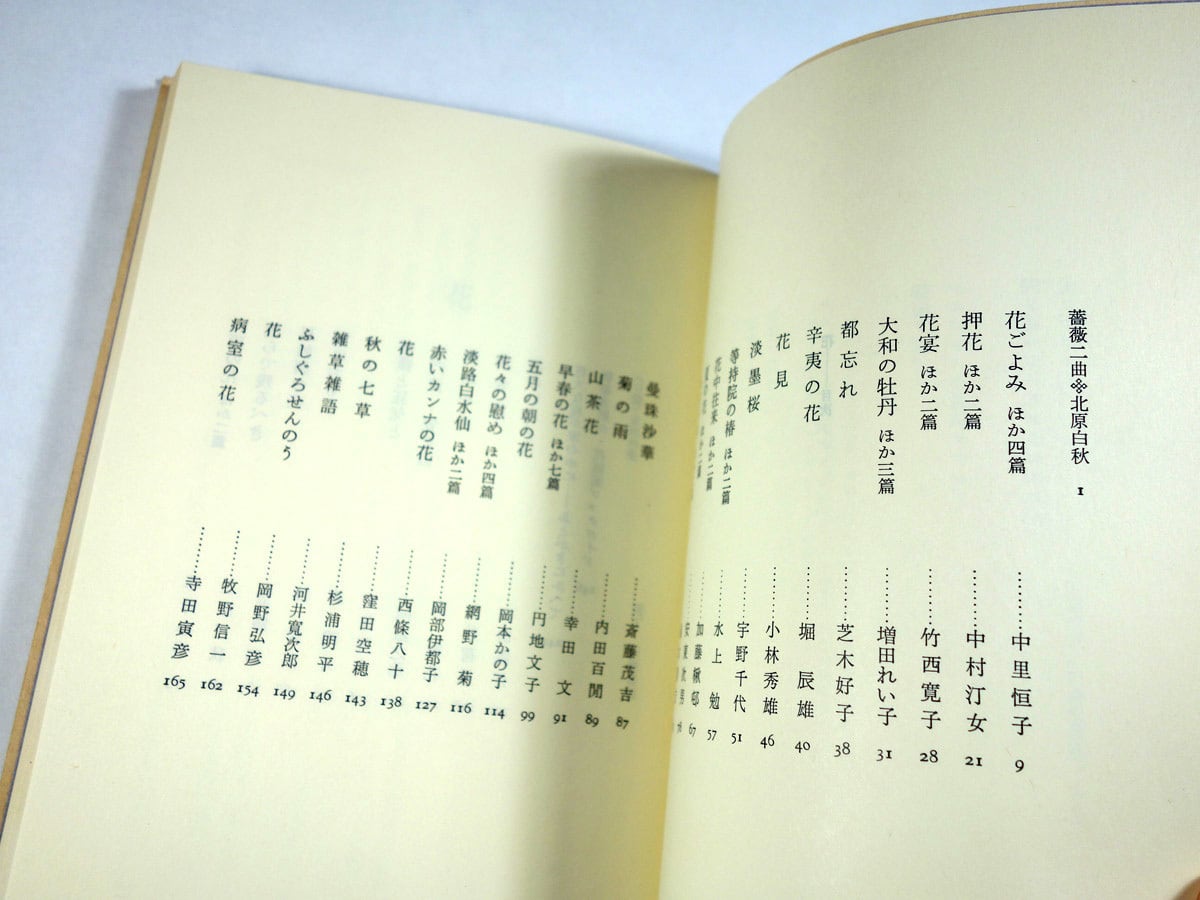 薔薇二曲❖北原白秋 1
花ごよみ ほか四篇…………中里恒子 9
押花 ほか二篇…………中村汀女 21
花宴 ほか二篇…………竹西寛子 28
大和の牡丹 ほか三篇…………増田れい子 31
都忘れ…………芝木好子 38
辛夷の花…………堀 辰雄 40
花見…………小林秀雄 46
淡墨桜…………宇野千代 51
等持院の椿 ほか二篇…………水上 勉 57
花中往来 ほか二篇…………加藤楸邨 67
の花 ほか二篇…………安東次男 76
曼珠沙華
菊の雨…………斎藤茂吉 87
山茶花…………内田百閒 89
早春の花 ほか七篇…………幸田 文 91
五月の朝の花…………円地文子 99
花々の慰め ほか四篇…………岡本かの子 114
淡路白水仙 ほか二篇…………網野 菊 116
赤いカンナの花…………岡部伊都子 127
花…………西條八十 138
秋の七草…………窪田空穂 143
雑草雑語…………杉浦明平 146
ふしぐろせんのう…………河井寛次郎 149
花…………岡野弘彦 154
病室の花…………牧野信一 162
…………寺田寅彦 165